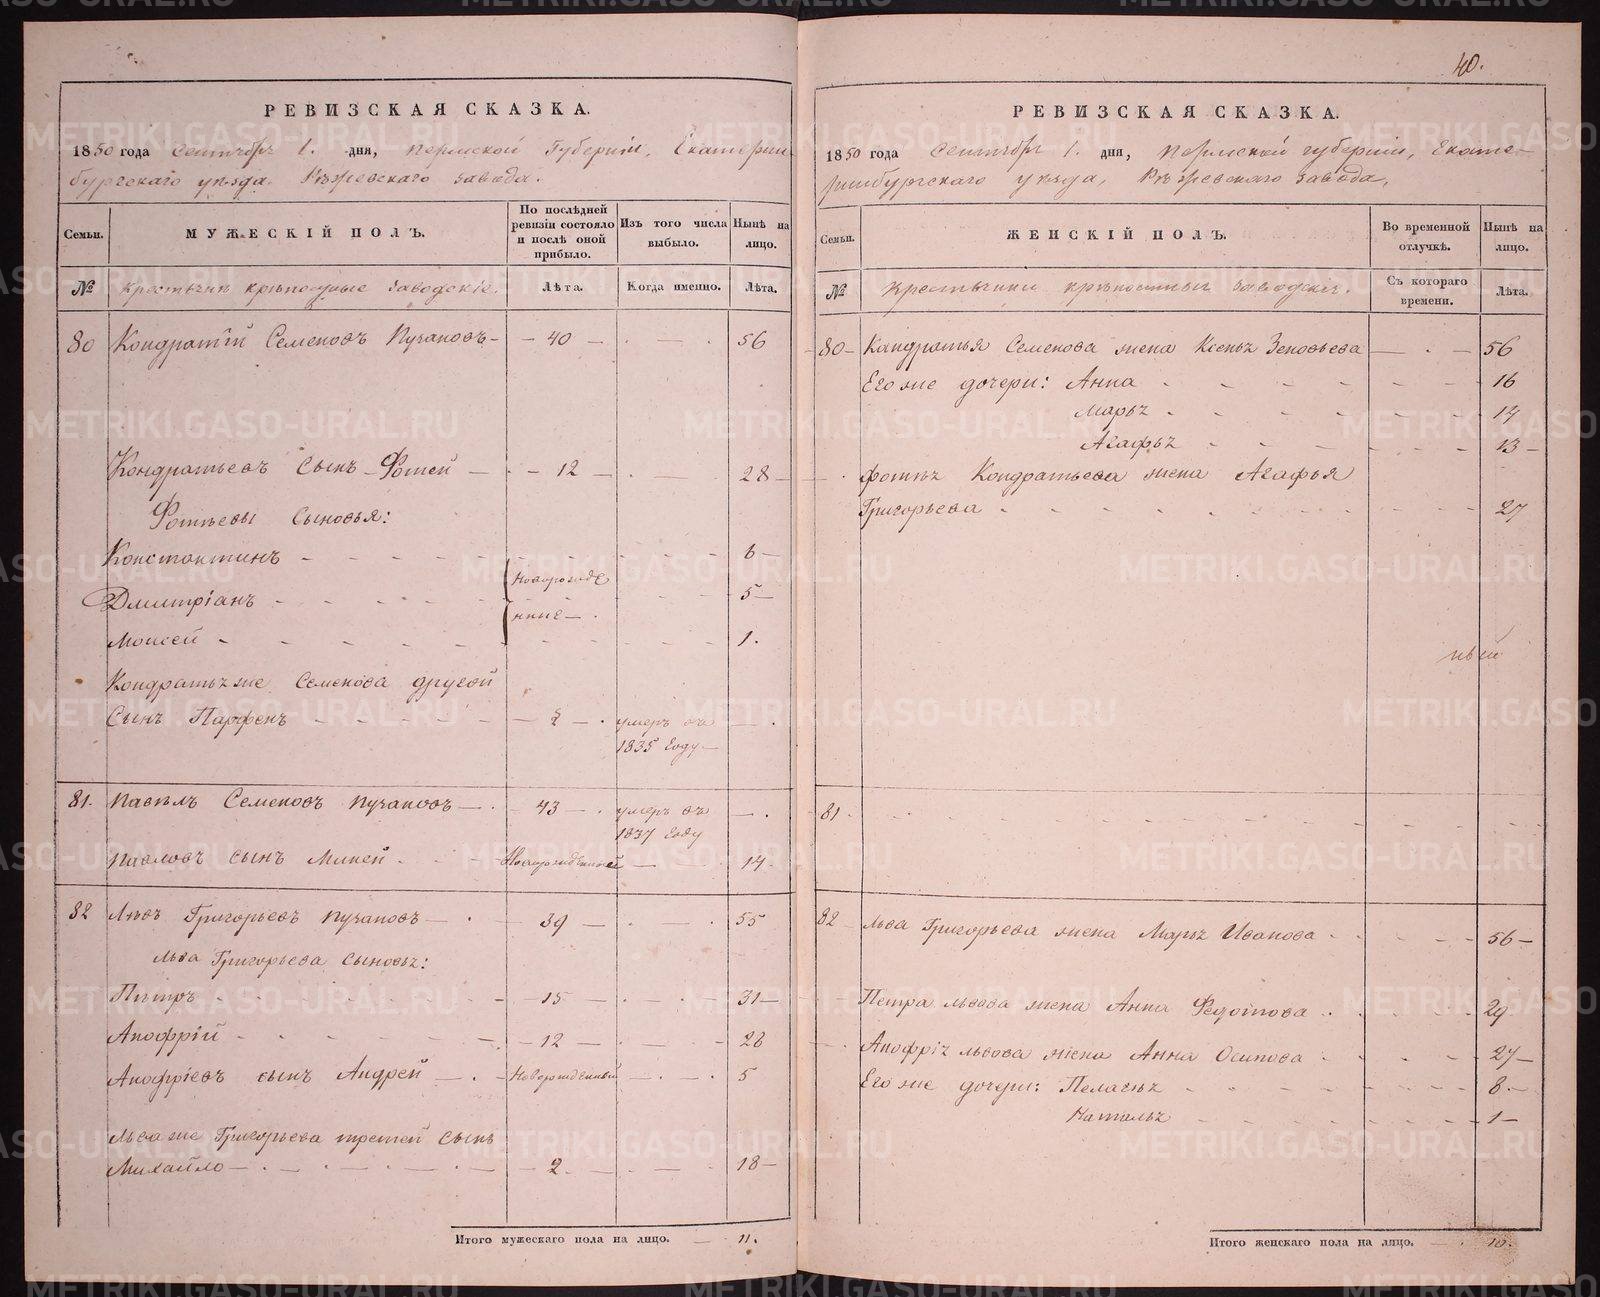 РЕВИЗСКАЯ СКАЗКА.
1850 года Сентября 1. дня, Пермской Губерніи, Екатерин
бургскаго уѣзда. Рѣжевскаго завода.
Семьи. МУЖЕСКІЙ ПОЛЪ. По послѣдней ревизіи состояло и послѣ оной прибыло. Изъ того числа выбыло. Нынѣ на лицо.
№ Крестьяне крѣпостные заводскіе. Лѣта. Когда именно. Лѣта.
80 Кондратій Семеновъ Пучановъ 40 56
Кондратьевъ сынъ Фотей 12 28
Фотѣевы сыновья:
Константинъ 6
Новорожде
Дмитріанъ 5
нные
Моисей 1.
Кондратья же Семенова другой
сынъ Парфенъ умеръ въ
1835 году
81. Павелъ Семеновъ Пучановъ 43 умеръ въ
1837 году
Павловъ сынъ Миней Новорожденной 14
82 Левъ Григорьевъ Пучановъ 39 55
Льва Григорьева сыновья:
Петръ 15 31
Анофрій 12 28
Анофріевъ сынъ Андрей Новорожденный 5
Льва же Григорьева третей сынъ
Михайло 2 18
Итого мужескаго пола на лицо. 11.
40.
РЕВИЗСКАЯ СКАЗКА.
1850 года Сентября 1. дня, Пермской губерніи, Екате-
ринбургскаго уѣзда, Рѣжевскаго завода,
Семьи. ЖЕНСКІЙ ПОЛЪ. Во временной отлучкѣ. Нынѣ на лицо.
№ Крестьянки крѣпостныя заводскіе. Съ котораго времени. Лѣта.
80 Кандратья Семенова жена Ксенья Зеновьева 56
Его же дочери: Анна 16
Марья 14
Агафья 13
Фотѣя Кондратьева жена Агафья
Григорьева 27
81
82 Льва Григорьева жена Марья Иванова 56
Петра Львова жена Анна Федотова 29
Анофрія Львова жена Анна Осипова 27
Его же дочери: Пелагея 8
Наталья 1
Итого женскаго пола на лицо. 10.
METRIKI.GASO-URAL.RU